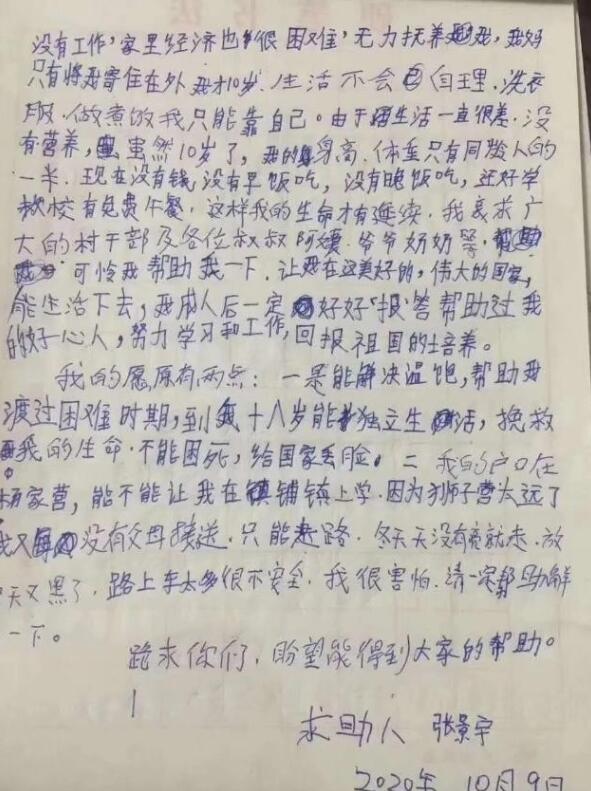 没有工作，家里经济也很困难，无力抚养我，我妈
只有将我寄住在外，我才10岁，生活不会自理，洗衣
服、做煮饭我只能靠自己。由于生活一直很差，没
有营养，虽然10岁了，我的身高、体重只有同龄人的
一半。现在没有钱，没有早饭吃，没有晚饭吃，还好学
校有免费午餐，这样我的生命才有延续，我哀求广
大的村干部及各位叔叔阿姨、爷爷奶奶等，
可怜我帮助我一下，让我在这美好的，伟大的国家，
能生活下去，我成人后一定好好"报"答帮助过我
的好心人，努力学习和工作，回报祖国的培养。
我的愿原有两点：一是能解决温饱，帮助我
渡过困难时期，到我十八岁能独立生活，挽救
我的生命，不能困死，给国家丢脸。二我的户口在
杨家营，能不能让我在镇铺镇上学，因为狮子营太远了
我又没有父母接送，只能走路，冬天天没有亮就走，放
天又黑了，路上车太多很不安全，我很害怕，请一定帮助解
一下。
跪求你们，盼望能得到大家的帮助。
求助人 张景宇
2020年10月9日